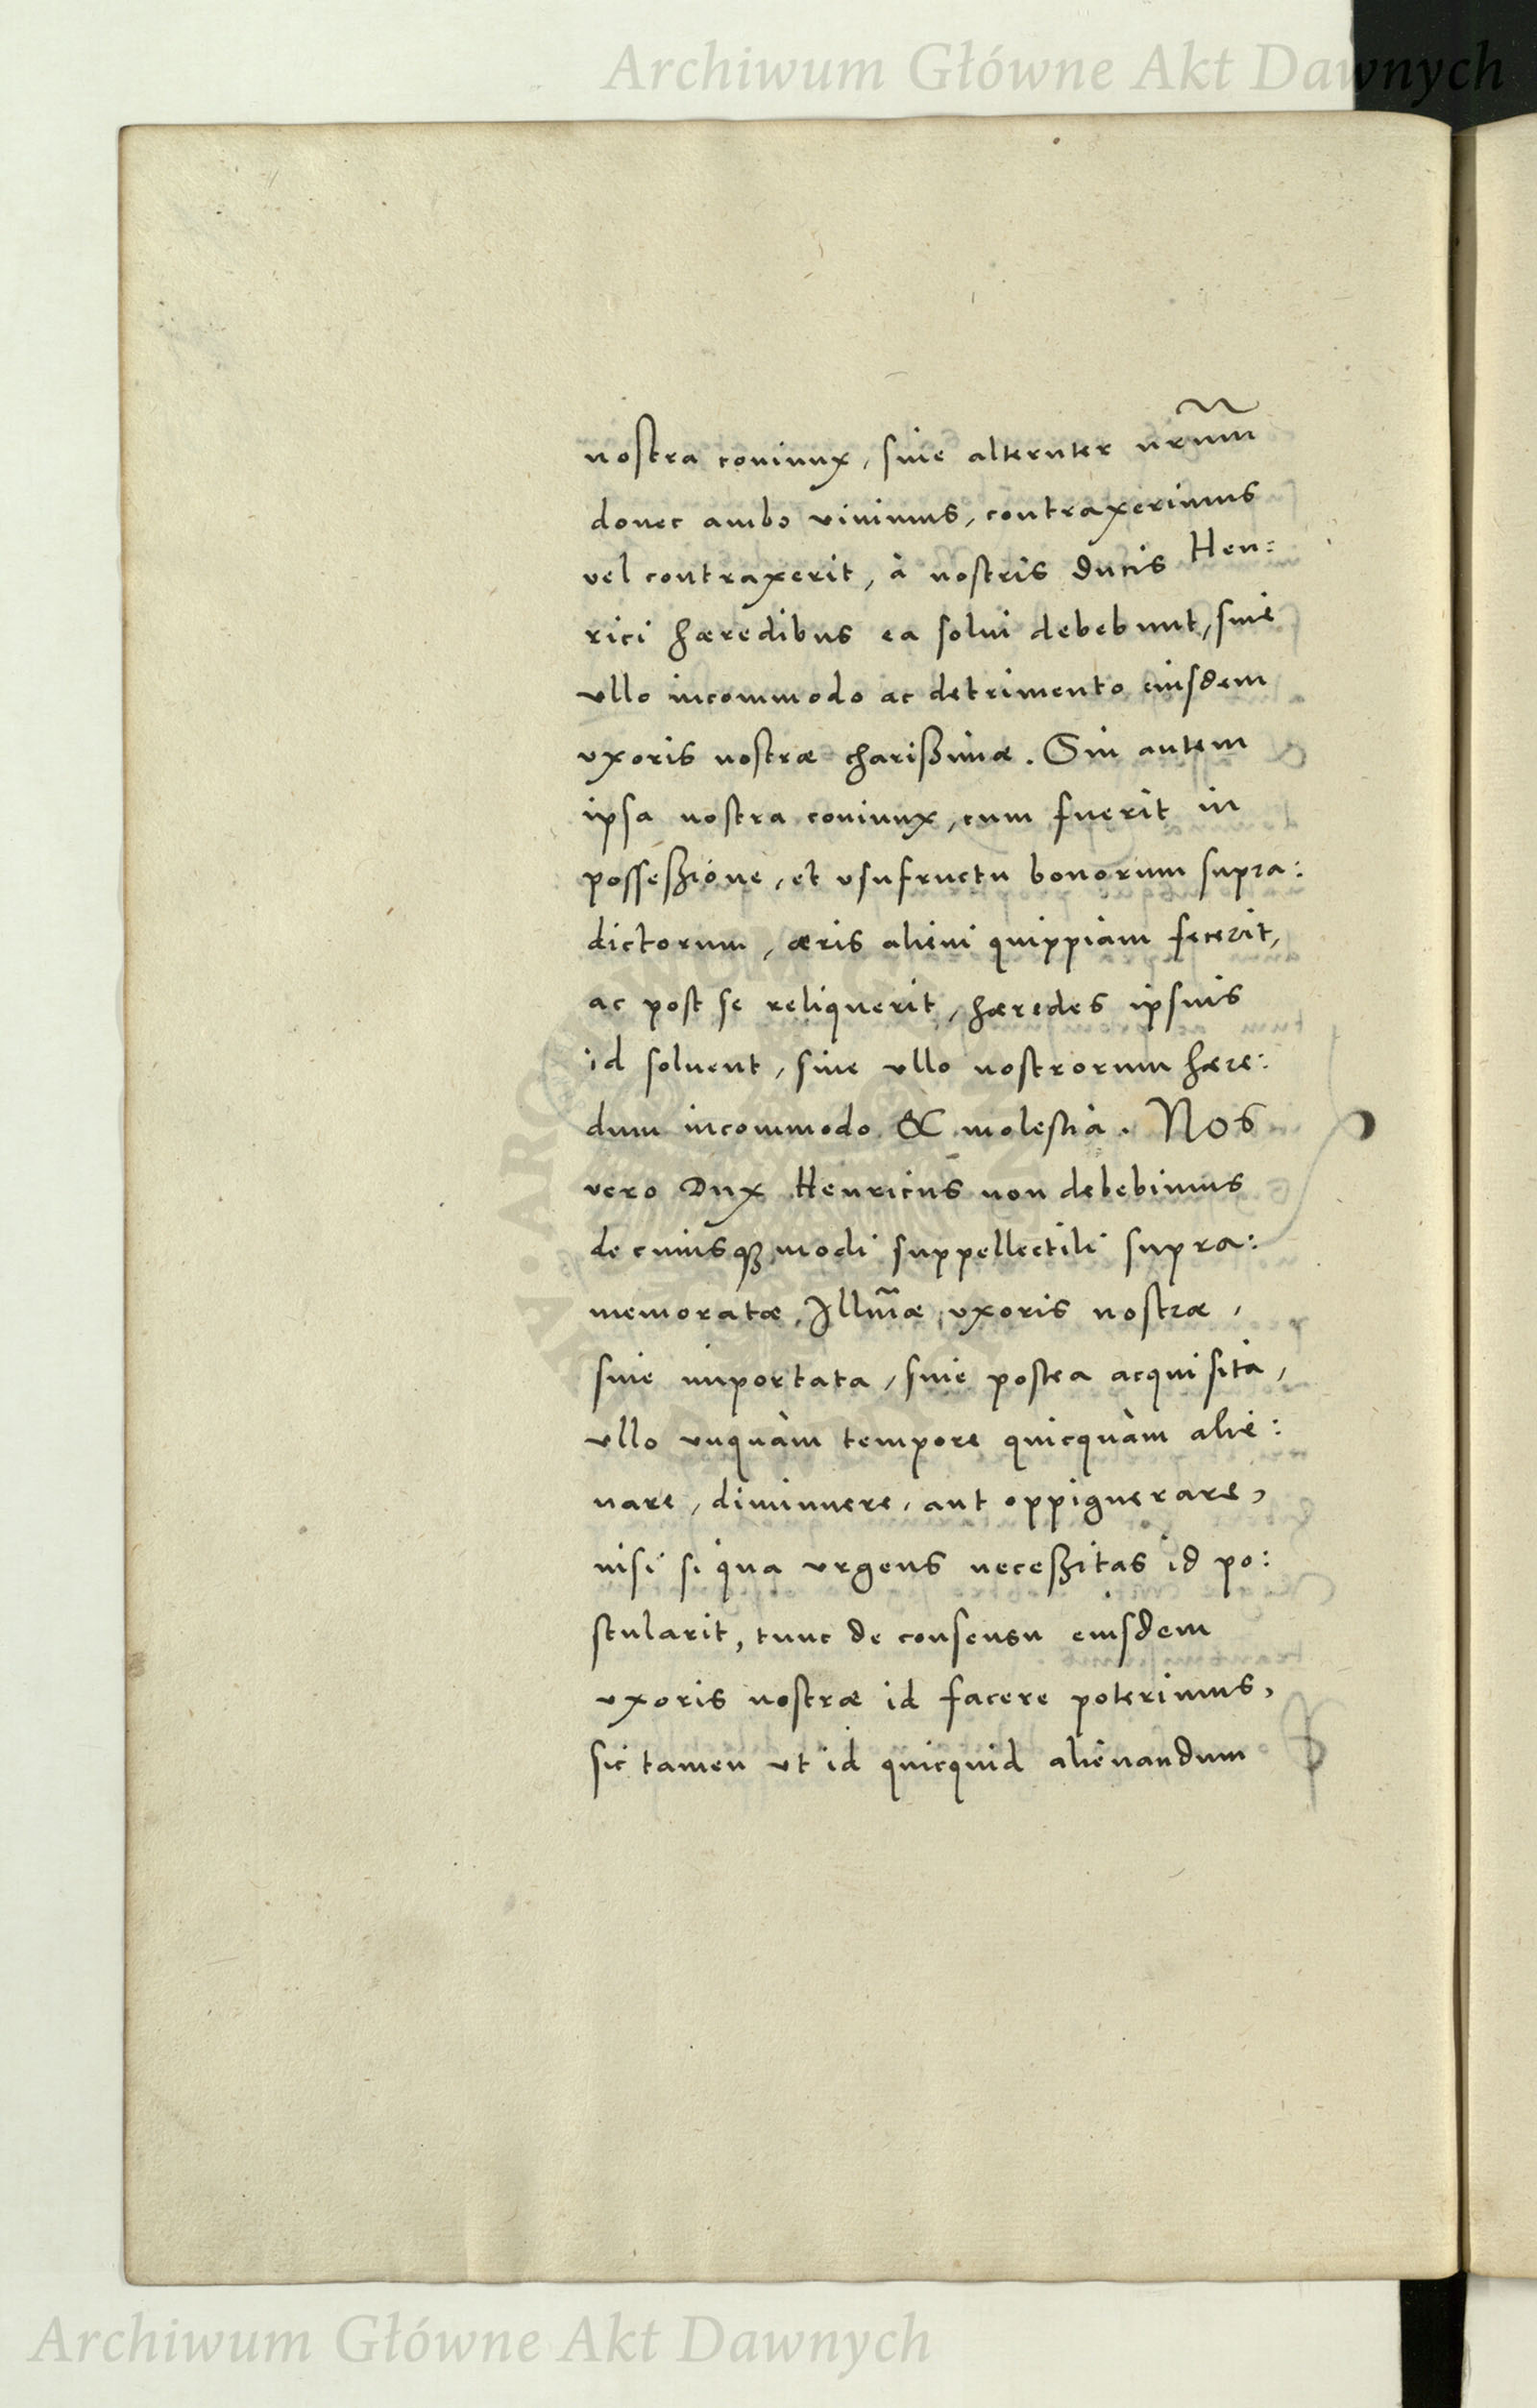 Archiwum Główne Akt Dawnych
nostra coniunx, siue alteruter nrum̃
donec ambo viuimus, contraxerimus
vel contraxerit, à nostris ducis Hen:
rici hæredibus ea solui debebunt, sine
ullo incommodo ac detrimento eiusdem
uxoris nostræ charißimæ. Sin autem
ipsa nostra coniunx, cum fuerit in
posseßione, et usufructu bonorum supra:
dictorum, æris alieni quippiàm fecerit,
ac post se reliquerit, hæredes ipsius
id soluent, sine ullo nostrorum hære:
dum incommodo & molestia. Nos
vero Dux Henricus non debebimus
de cuiusq; modi suppellectili supra:
memoratæ, Illm̃æ uxoris nostræ,
siue importata, siue postea acquisita,
ullo unquàm tempore quicquàm alie:
nare, diminuere, aut oppignerare,
nisi si qua urgens neceßitas id po:
stularit, tunc de consensu eiusdem
uxoris nostræ id facere poterimus,
sic tamen ut id quicquid alienandum
Archiwum Główne Akt Dawnych